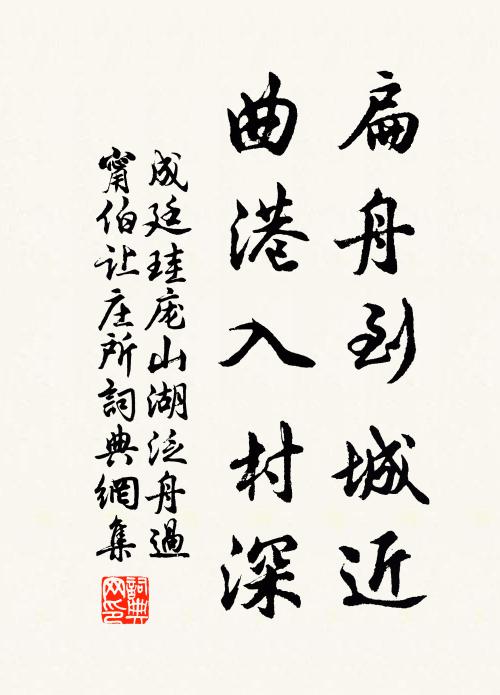 扁舟到城近
曲港入村深
成廷珪庞山湖泛舟過
甯伯让庄所詞典網集
詞典
网印